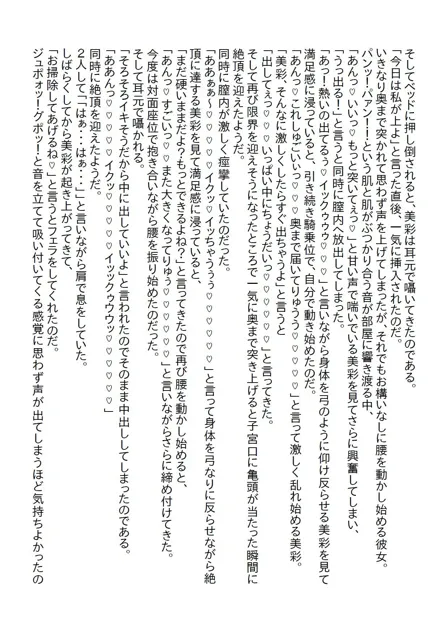 そしてベッドに押し倒されると、美彩は耳元で囁いてきたのである。
「今日は私が上よ」と言った直後、一気に挿入されたのだ。
いきなり奥まで突かれて思わず声を上げてしまったが、それでもお構いなしに腰を動かし始める彼女。
パンッ！パァン！！という肌と肌がぶつかり合う音が部屋に響き渡る中、
「あんっ♡いいっ♡もっと突いてぇっ♡」と甘い声で喘いでいる美彩を見てさらに興奮してしまい、
「うっ出る！」と言うと同時に膣内へ放出してしまった。
「あっ！熱いの出てるぅ♡イックゥゥウ♡♡♡♡」と言いながら身体を弓のように仰け反らせる美彩を見て
満足感に浸っていると、引き続き騎乗位で、自分で動き始めたのだ。
「あんっ♡これしゅごいっっ♡♡奥まで届いてりゅうう♡♡♡♡♡」と言って激しく乱れ始める美彩。
「美彩、そんなに激しくしたらすぐ出ちゃうよ」と言うと
「出してぇっ♡♡いっぱい中にちょうだいっっ♡♡♡」と言ってきた。
そして再び限界を迎えそうになったところで一気に奥まで突き上げると子宮口に亀頭が当たった瞬間に
絶頂を迎えたようだ。
同時に膣内が激しく痙攣していたのだった。
「あああぁ〜♡♡♡♡♡イクッ♡イッちゃうぅっ♡♡♡♡♡」と言って身体を弓なりに反らせながら絶
頂に達する美彩を見て満足感に浸っていると、
「まだ硬いままだよ？もっとできるよね？」と言ってきたので再び腰を動かし始めると、
「あんっ♡すごいっっ♡♡また大きくなってりゅぅ♡♡♡♡」と言いながらさらに締め付けてきた。
今度は対面座位で抱き合いながら腰を振り始めたのだった。
そして耳元で囁かれる。
「そろそろイキそうだから中に出していいよ」と言われたのでそのまま中出ししてしまったのである。
「ああんっ♡♡♡♡♡イクッ♡イックゥウウッ♡♡♡♡♡♡」
同時に絶頂を迎えたようだ。
２人して「はぁ・・・はぁ・・・」と言いながら肩で息をしていた。
しばらくしてから美彩が起き上がってきて、
「お掃除してあげるね♡」と言うとフェラをしてくれたのだ。
ジュポォッ！グポッ！と音を立てて吸い付いてくる感覚に思わず声が出てしまうほど気持ちよかったの